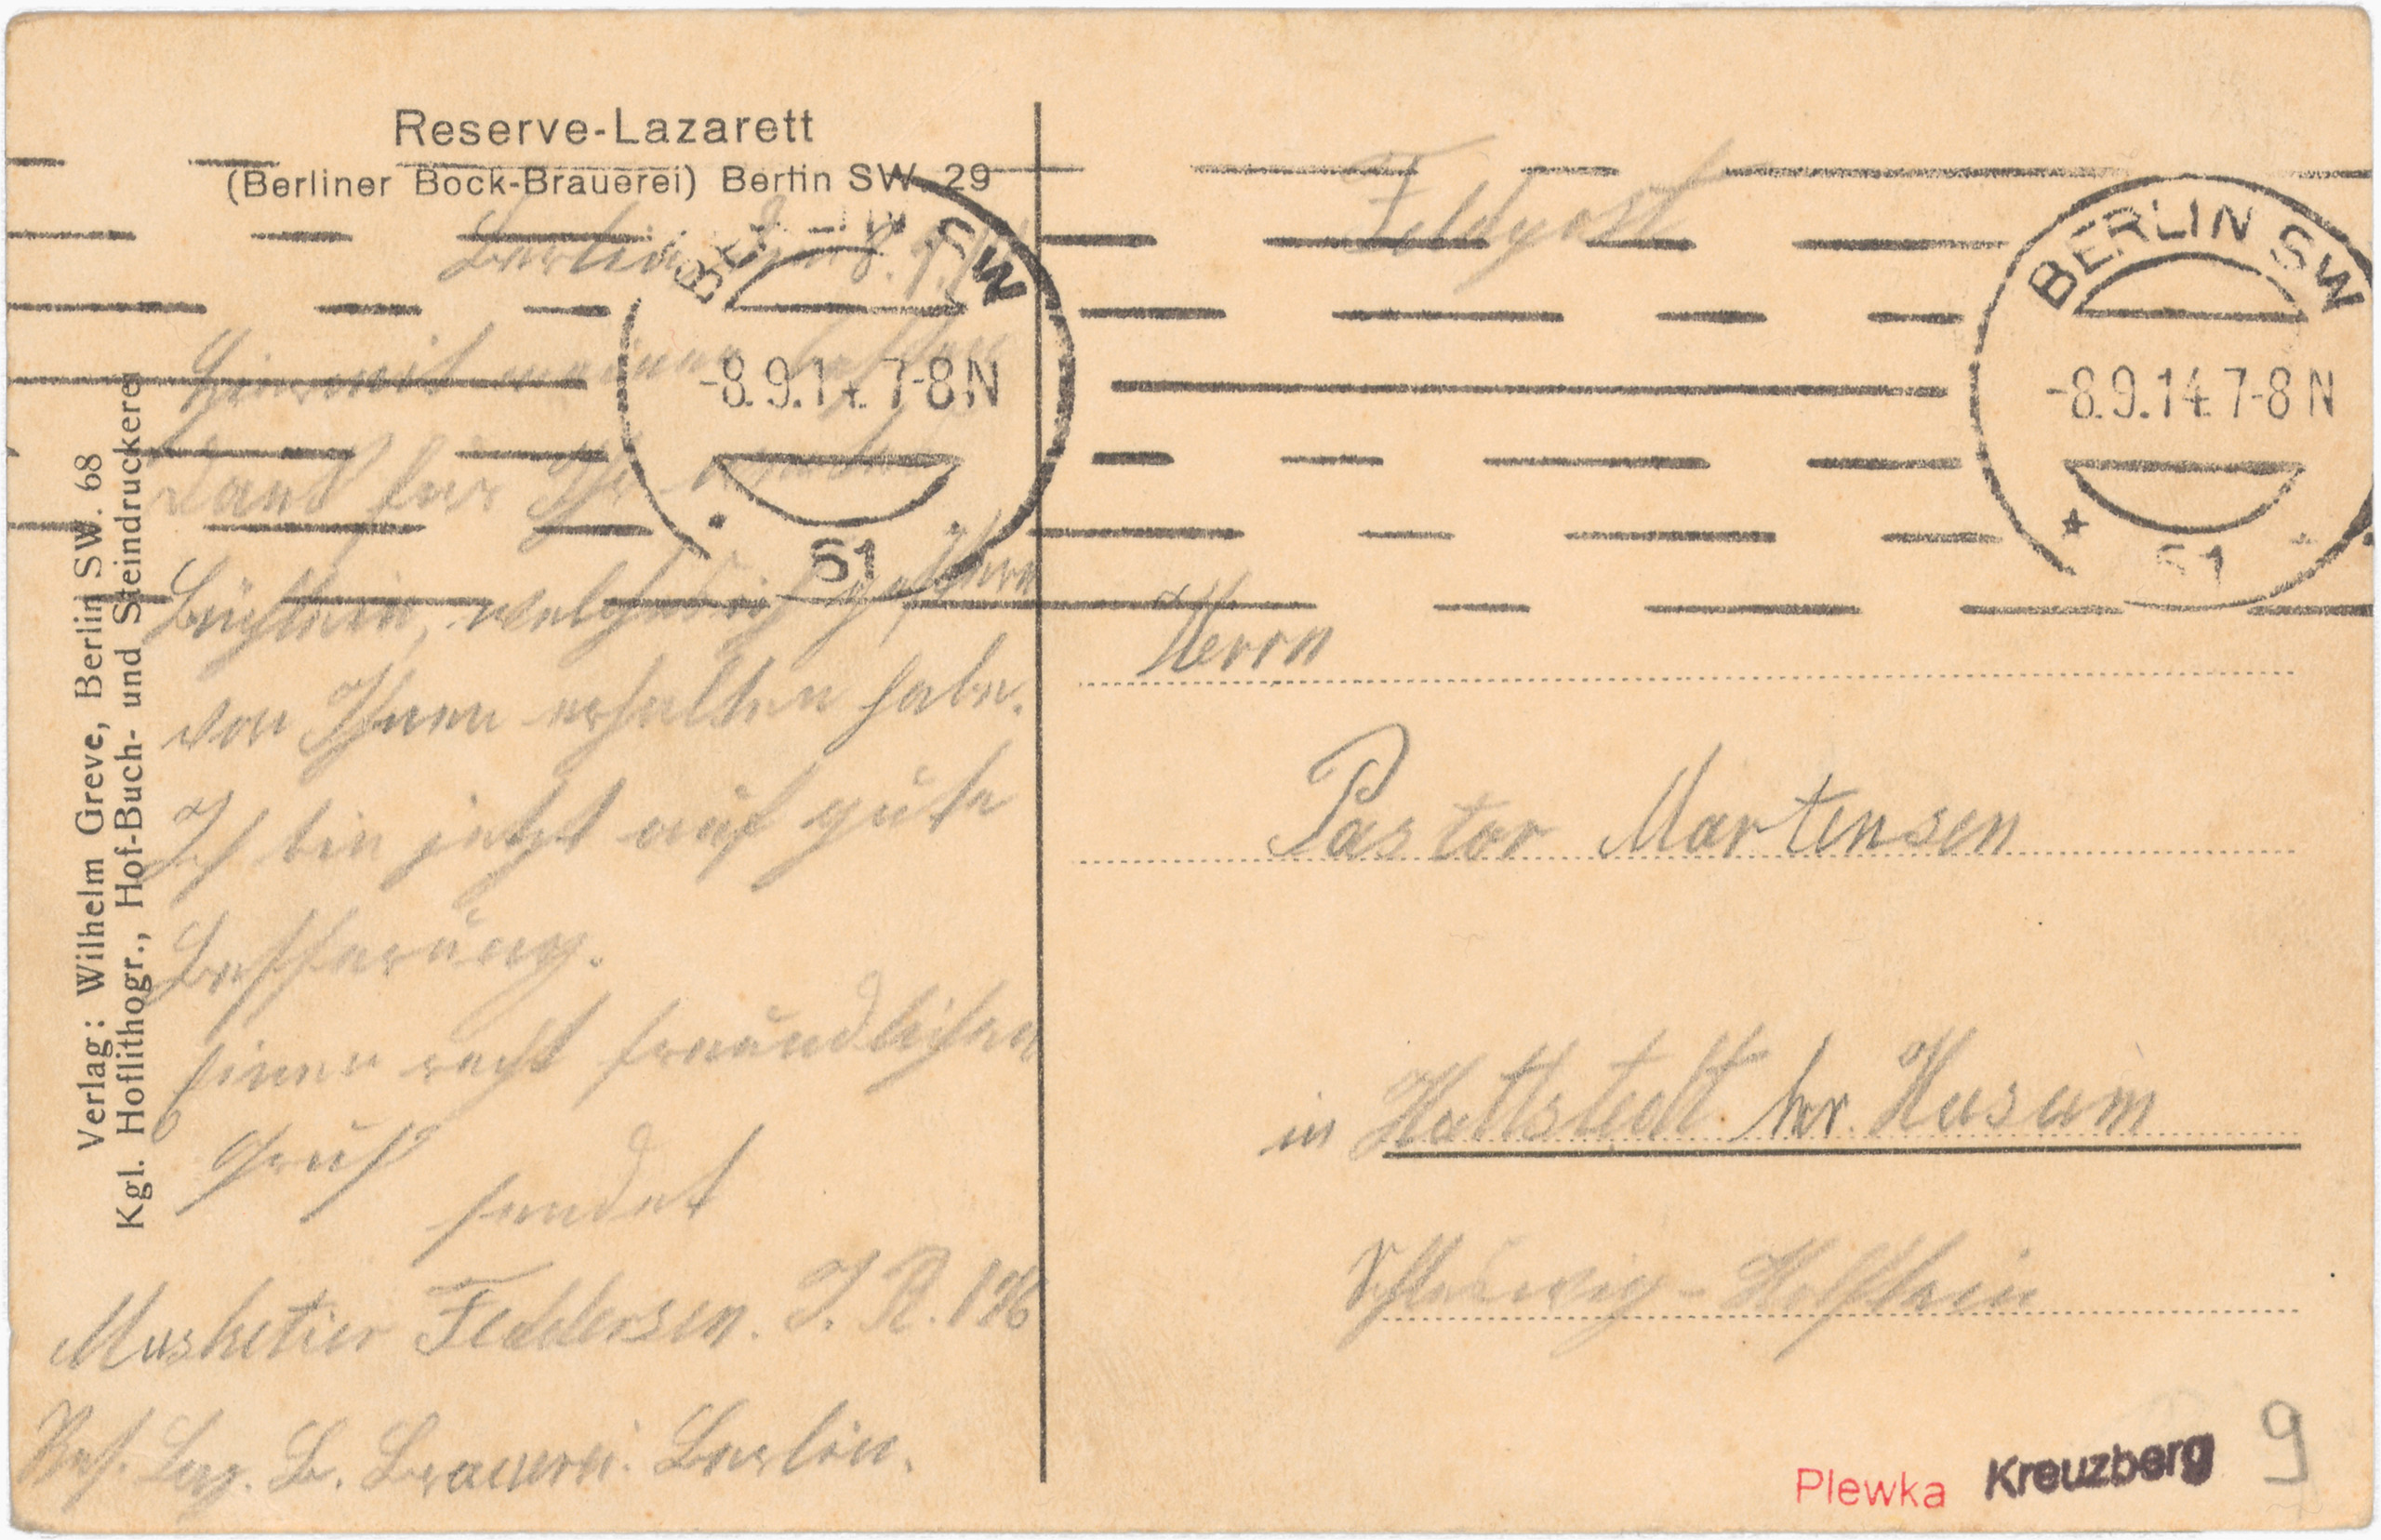 Reserve-Lazarett
(Berliner Bock-Brauerei) Berlin SW. 29
Berlin, den 8. 9. 14
Hiermit meinen besten
Dank für Ihr
Büchlein, welches ich gestern
von Ihnen erhalten habe.
Ich bin jetzt auf gute
Besserung.
Einen recht freundlichen
Gruß
sendet
Musketier Feddersen. I. R.
Res. Laz. B. Brauerei. Berlin.
Verlag: Wilhelm Greve, Berlin SW. 68
Kgl. Hoflithogr., Hof-Buch- und Steindruckerei
BERLIN SW
-8.9.14. 7-8 N
51
Feldpost
BERLIN SW
-8.9.14. 7-8 N
51
Herrn
Pastor Martensen
in Hattstedt br. Husum
Schleswig-Holstein
Plewka Kreuzberg 9